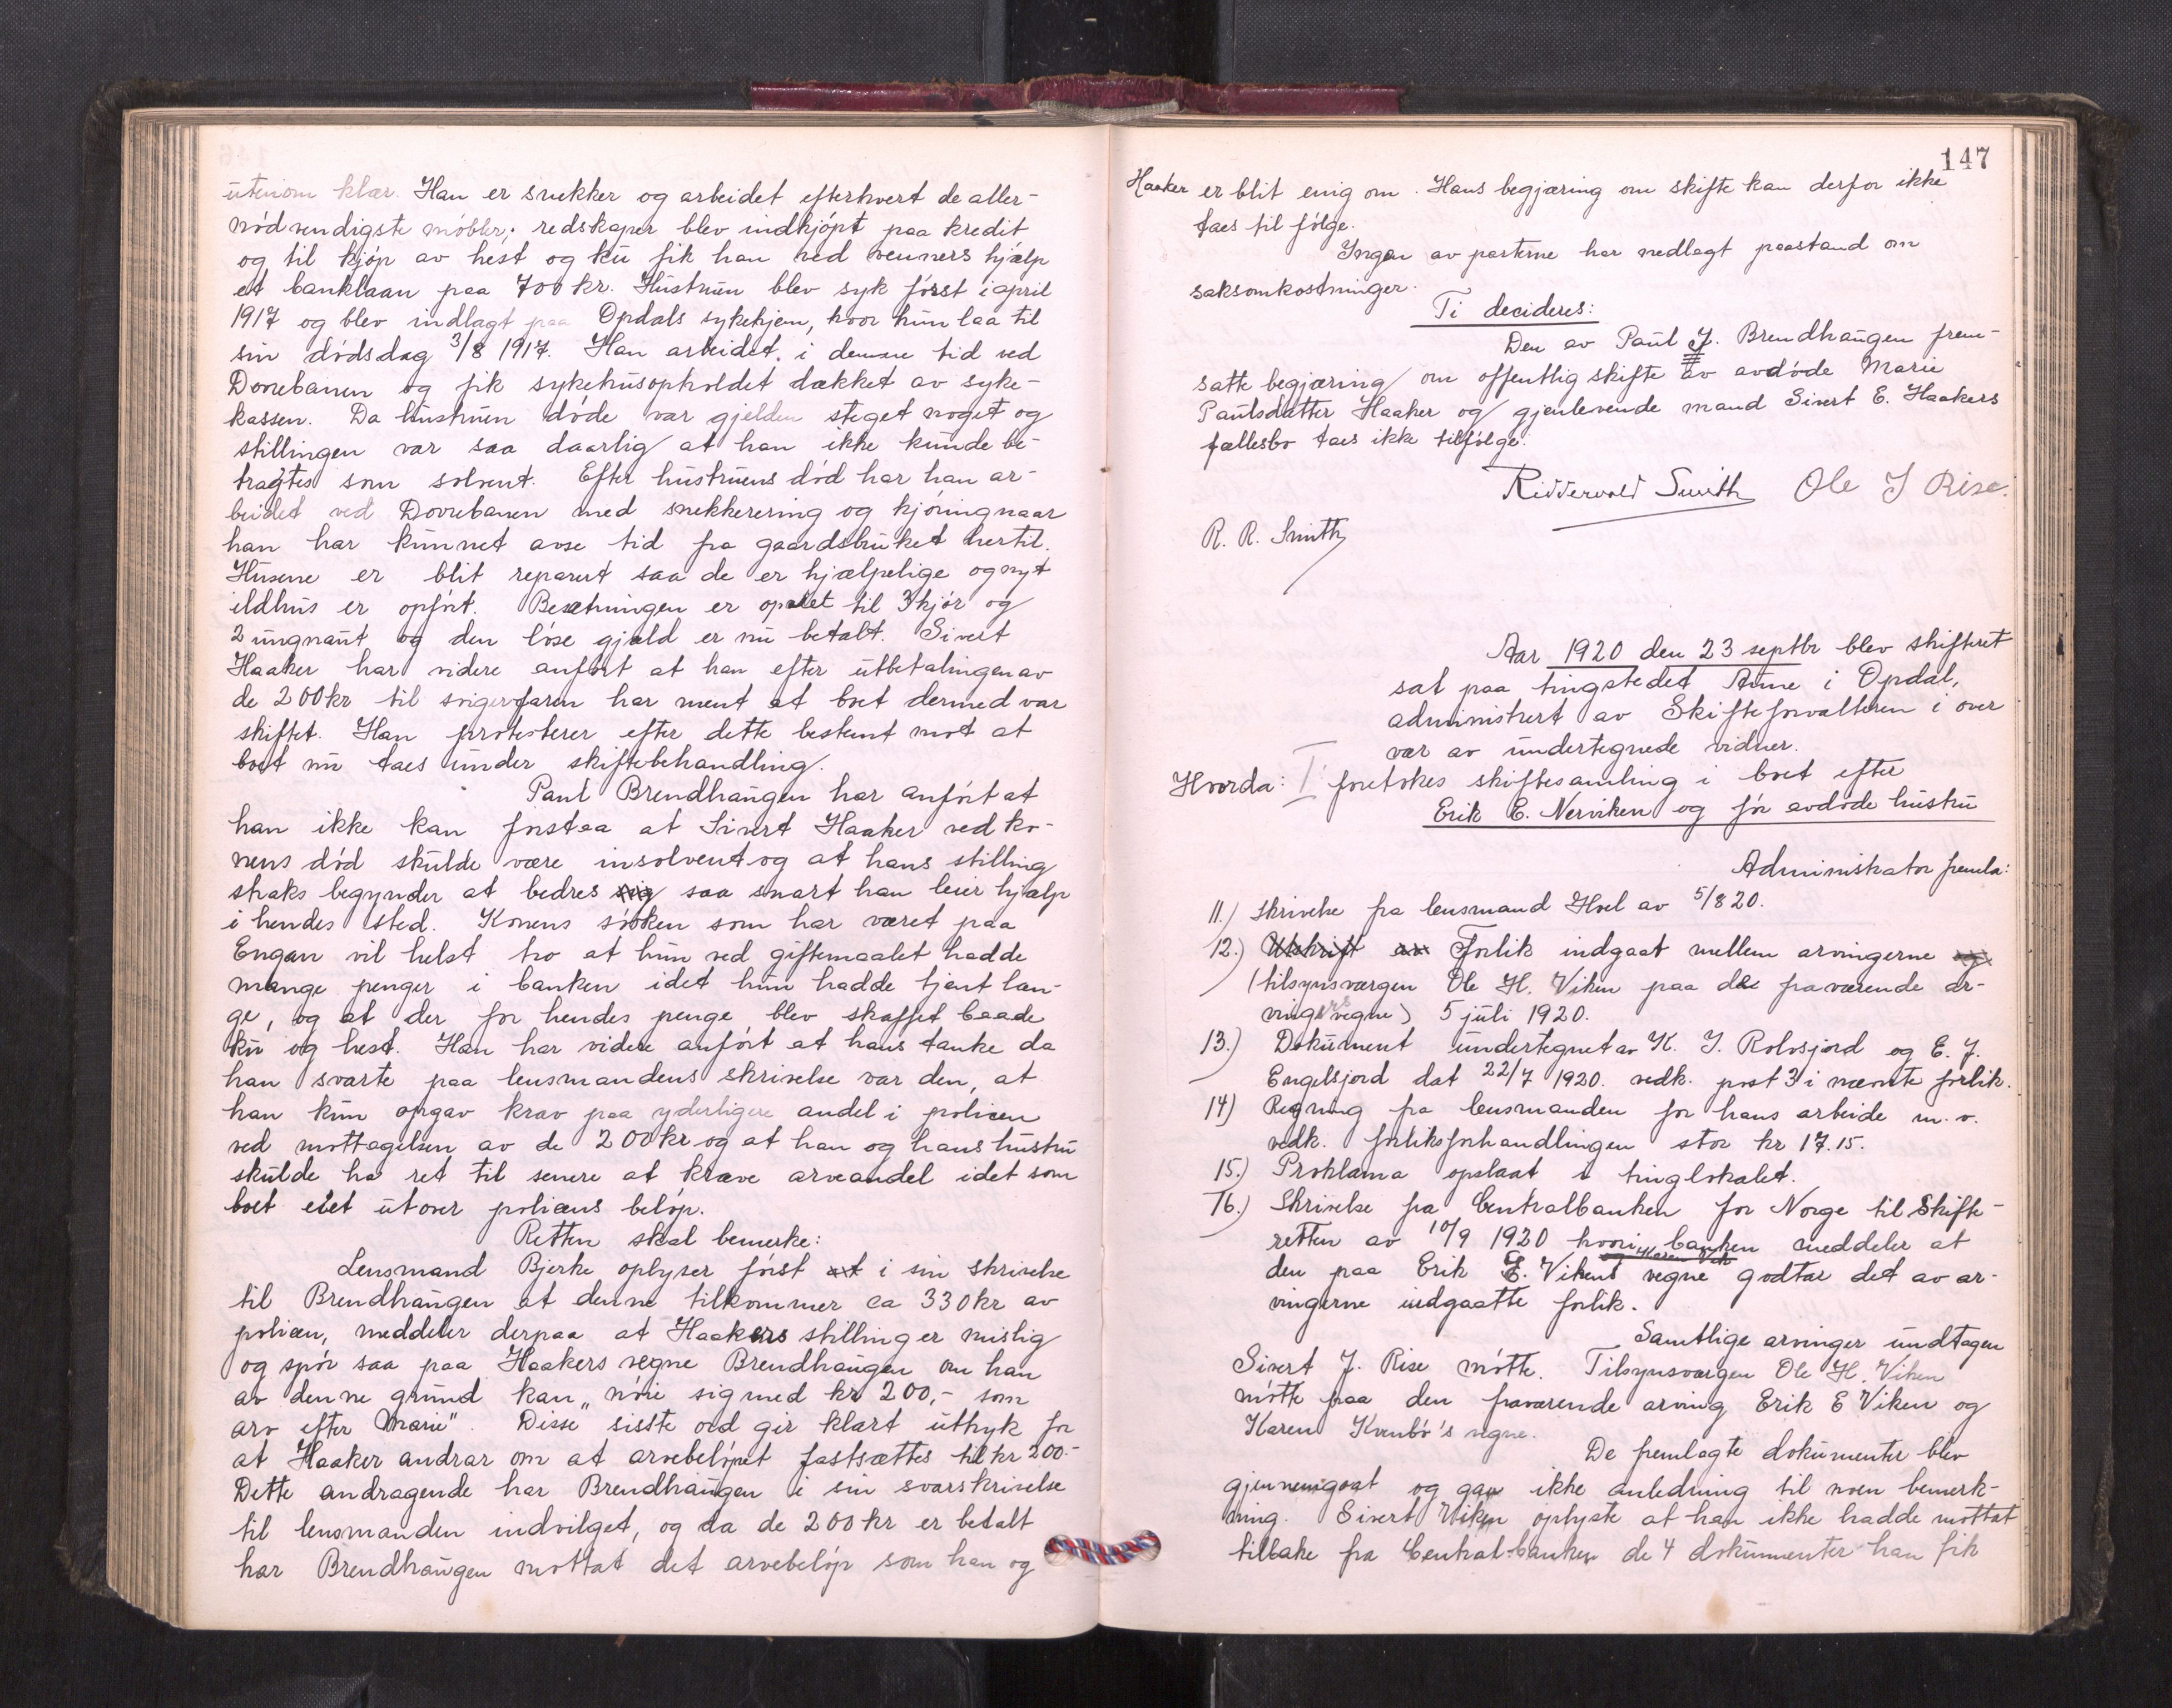 utenom klær. Han er snekker og arbeidet efterhvert de aller-
nödvendigste möbler; redskaper blev indkjöpt paa kredit
og til kjöp av hest og ku fik han ved venners hjælp
et banklaan paa 700 kr. Hustruen blev syk först i april
1917 og blev indlagt paa Opdals sykehjem, hvor hun laa til
sin dödsdag 3/8 1917. Han arbeidet i denne tid ved
Dovrebanen og fik sykehusopholdet dækket av syke-
kassen. Da hustruen döde var gjelden steget noget og
stillingen var saa daarlig at han ikke kunde be-
tragtes som solvent. Efter hustruens död har han ar-
beidet ved Dovrebanen med snekkerering og kjöring naar
han har kunnet avse tid fra gaardsbruket hertil.
Husene er blit reparert saa de er hjælpelige og nyt
ildhus er opfört. Besætningen er opalet til 3 kjör og
2 ungnaut og den löse gjæld er nu betalt. Sivert
Haaker har videre anfört at han efter utbetalingen av
de 200 kr til svigerfaren har ment at boet dermed var
skiftet. Han protesterer efter dette bestemt mot at
boet nu taes under skiftebehandling.
Paul Brendhaugen har anfört at
han ikke kan forstaa at Sivert Haaker ved ko-
nens död skulde være insolvent og at hans stilling
straks begynder at bedres sig saa snart han leier hjælp
i hendes sted. Konens söskend som har været paa
Engan vil helst tro at hun ved giftemaalet hadde
mange penger i banken idet hun hadde tjent læn-
ge, og at der for hendes penge blev skaffet baade
ku og hest. Han har videre anfört at hans tanke da
han svarte paa lensmandens skrivelse var den, at
han kun opgav krav paa yderligere andel i policen
ved mottagelsen av de 200 kr og at han og hans hustru
skulde ha ret til senere at kræve arveandel idet som
boet eiet utover policens belöp.
Retten skal bemerke:
Lensmand Bjerke oplyser först at i sin skrivelse
til Brendhaugen at denne tilkommer ca 330 kr av
policen, meddeler derpaa at Haakers stilling er mislig
og spör saa paa Haakers vegne Brendhaugen om han
av denne grund kan „nöie sig med kr 200,- som
arv efter Marie". Disse sisste ord gir klart uttryk for
at Haaker andrar om at arvebelöpet fastsættes til kr 200.-
Dette andragende har Brendhaugen i sin svarskrivelse
til lensmanden indvilget, og da de 200 kr er betalt
har Brendhaugen mottat det arvebelöp som han og
147
Haaker er blit enig om. Hans begjæring om skifte kan derfor ikke
taes til fölge.
Ingen av parterne har nedlagt paastand om
saksomkostninger.
Ti decideres:
Den av Paul J. Brendhaugen frem-
satte begjæring om offentlig skifte av avdöde Marie
Paulsdatter Haaker og gjenlevende mand Sivert E. Haakers
fællesbo taes ikke tilfölge.
Riddervold Smith Ole J Rise.
R. R. Smith
Aar 1920 den 23 septbr blev skifteret
sat paa tingstedet Aune i Opdal,
administrert av Skifteforvalteren i over
vær av undertegnede vidner.
Hvorda: I foretokes skiftesamling i boet efter
Erik E. Nerviken og för avdöde hustru
Administrator fremla:
11.) Skrivelse fra lensmand Hoel av 5/8 20.
12.) Utskrift av Forlik indgaat mellem arvingerne og
(tilsynsværgen Ole H. Viken paa de fraværende ar-
vingers vegne) 5 juli 1920.
13.) Dokument undertegnet av K. J. Rolvsjord og E. J.
Engelsjord dat 22/7 1920. vedk. post 3 i nævnte forlik.
14) Regning fra lensmanden for hans arbeide m. v.
vedk. forliksforhandlingen stor kr 17.15.
15.) Proklama opslaat i tinglokalet.
16.) Skrivelse fra Centralbanken for Norge til Skifte-
retten av 10/9 1920 hvori banken meddeler at
den paa Erik E. Vikens vegne godtar det av ar-
vingerne indgaatte forlik.
Samtlige arvinger undtagen
Sivert J. Rise mötte. Tilsynsværgen Ole H. Viken
mötte paa den fraværende arving Erik E Viken og
Karen Kvenbö's vegne.
De fremlagte dokumenter blev
gjennemgaat og gav ikke anledning til noen bemerk-
ning. Sivert Viken oplyste at han ikke hadde mottat
tilbake fra Centralbanken de 4 dokumenter han fik